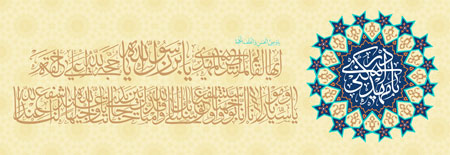 یا وصی الحسن والخلف الحجة
ایها القائم المنتظر المهدی یابن رسول الله یا حجة الله علی خلقه
یا سیدنا و مولانا انا توجهنا واستشفعنا وتوسلنا بک الی الله وقدمناک بین یدی حاجاتنا یا وجیها عند الله اشفع لنا عند الله
یا مهدی ادرکنی